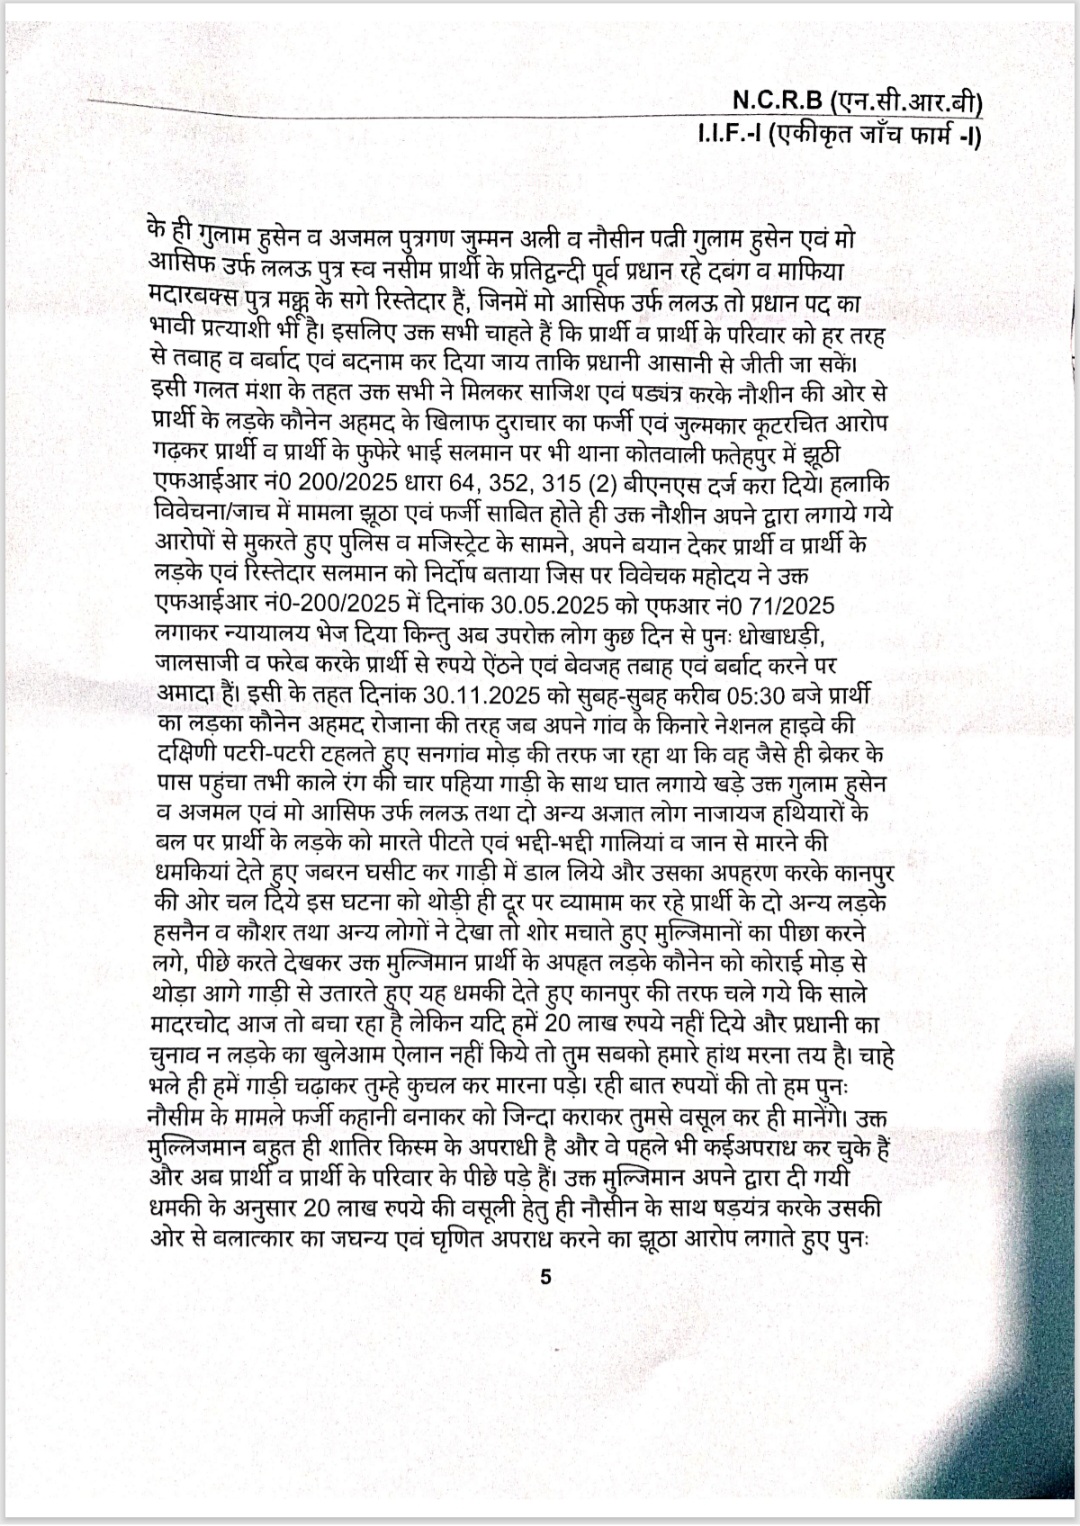 N.C.R.B (एन.सी.आर.बी)
I.I.F.-I (एकीकृत जाँच फार्म -I)
के ही गुलाम हुसेन व अजमल पुत्रगण जुम्मन अली व नौसीन पत्नी गुलाम हुसेन एवं मो
आसिफ उर्फ ललऊ पुत्र स्व नसीम प्रार्थी के प्रतिद्वन्दी पूर्व प्रधान रहे दबंग व माफिया
मदारबक्स पुत्र मक्कू के सगे रिस्तेदार हैं, जिनमें मो आसिफ उर्फ ललऊ तो प्रधान पद का
भावी प्रत्याशी भी है। इसलिए उक्त सभी चाहते हैं कि प्रार्थी व प्रार्थी के परिवार को हर तरह
से तबाह व बर्बाद एवं बदनाम कर दिया जाय ताकि प्रधानी आसानी से जीती जा सकें।
इसी गलत मंशा के तहत उक्त सभी ने मिलकर साजिश एवं षड्यंत्र करके नौशीन की ओर से
प्रार्थी के लड़के कौनेन अहमद के खिलाफ दुराचार का फर्जी एवं जुल्मकार कूटरचित आरोप
गढ़कर प्रार्थी व प्रार्थी के फुफेरे भाई सलमान पर भी थाना कोतवाली फतेहपुर में झूठी
एफआईआर नं0 200/2025 धारा 64, 352, 315 (2) बीएनएस दर्ज करा दिये। हलाकि
विवेचना/जाच में मामला झूठा एवं फर्जी साबित होते ही उक्त नौशीन अपने द्वारा लगाये गये
आरोपों से मुकरते हुए पुलिस व मजिस्ट्रेट के सामने, अपने बयान देकर प्रार्थी व प्रार्थी के
लड़के एवं रिस्तेदार सलमान को निर्दोष बताया जिस पर विवेचक महोदय ने उक्त
एफआईआर नं0-200/2025 में दिनांक 30.05.2025 को एफआर नं0 71/2025
लगाकर न्यायालय भेज दिया किन्तु अब उपरोक्त लोग कुछ दिन से पुनः धोखाधड़ी,
जालसाजी व फरेब करके प्रार्थी से रुपये ऐंठने एवं बेवजह तबाह एवं बर्बाद करने पर
अमादा हैं। इसी के तहत दिनांक 30.11.2025 को सुबह-सुबह करीब 05:30 बजे प्रार्थी
का लड़का कौनेन अहमद रोजाना की तरह जब अपने गांव के किनारे नेशनल हाइवे की
दक्षिणी पटरी-पटरी टहलते हुए सनगांव मोड़ की तरफ जा रहा था कि वह जैसे ही ब्रेकर के
पास पहुंचा तभी काले रंग की चार पहिया गाड़ी के साथ घात लगाये खड़े उक्त गुलाम हुसेन
व अजमल एवं मो आसिफ उर्फ ललऊ तथा दो अन्य अज्ञात लोग नाजायज हथियारों के
बल पर प्रार्थी के लड़के को मारते पीटते एवं भद्दी-भद्दी गालियां व जान से मारने की
धमकियां देते हुए जबरन घसीट कर गाड़ी में डाल लिये और उसका अपहरण करके कानपुर
की ओर चल दिये इस घटना को थोड़ी ही दूर पर व्यामाम कर रहे प्रार्थी के दो अन्य लड़के
हसनैन व कौशर तथा अन्य लोगों ने देखा तो शोर मचाते हुए मुल्जिमानों का पीछा करने
लगे, पीछे करते देखकर उक्त मुल्जिमान प्रार्थी के अपहृत लड़के कौनेन को कोराई मोड़ से
थोड़ा आगे गाड़ी से उतारते हुए यह धमकी देते हुए कानपुर की तरफ चले गये कि साले
मादरचोद आज तो बचा रहा है लेकिन यदि हमें 20 लाख रुपये नहीं दिये और प्रधानी का
चुनाव न लड़के का खुलेआम ऐलान नहीं किये तो तुम सबको हमारे हांथ मरना तय है। चाहे
भले ही हमें गाड़ी चढ़ाकर तुम्हे कुचल कर मारना पड़े। रही बात रुपयों की तो हम पुनः
नौसीम के मामले फर्जी कहानी बनाकर को जिन्दा कराकर तुमसे वसूल कर ही मानेंगे। उक्त
मुल्लिजमान बहुत ही शातिर किस्म के अपराधी है और वे पहले भी कईअपराध कर चुके हैं
और अब प्रार्थी व प्रार्थी के परिवार के पीछे पड़े हैं। उक्त मुल्जिमान अपने द्वारा दी गयी
धमकी के अनुसार 20 लाख रुपये की वसूली हेतु ही नौसीन के साथ षड़यंत्र करके उसकी
ओर से बलात्कार का जघन्य एवं घृणित अपराध करने का झूठा आरोप लगाते हुए पुनः
5